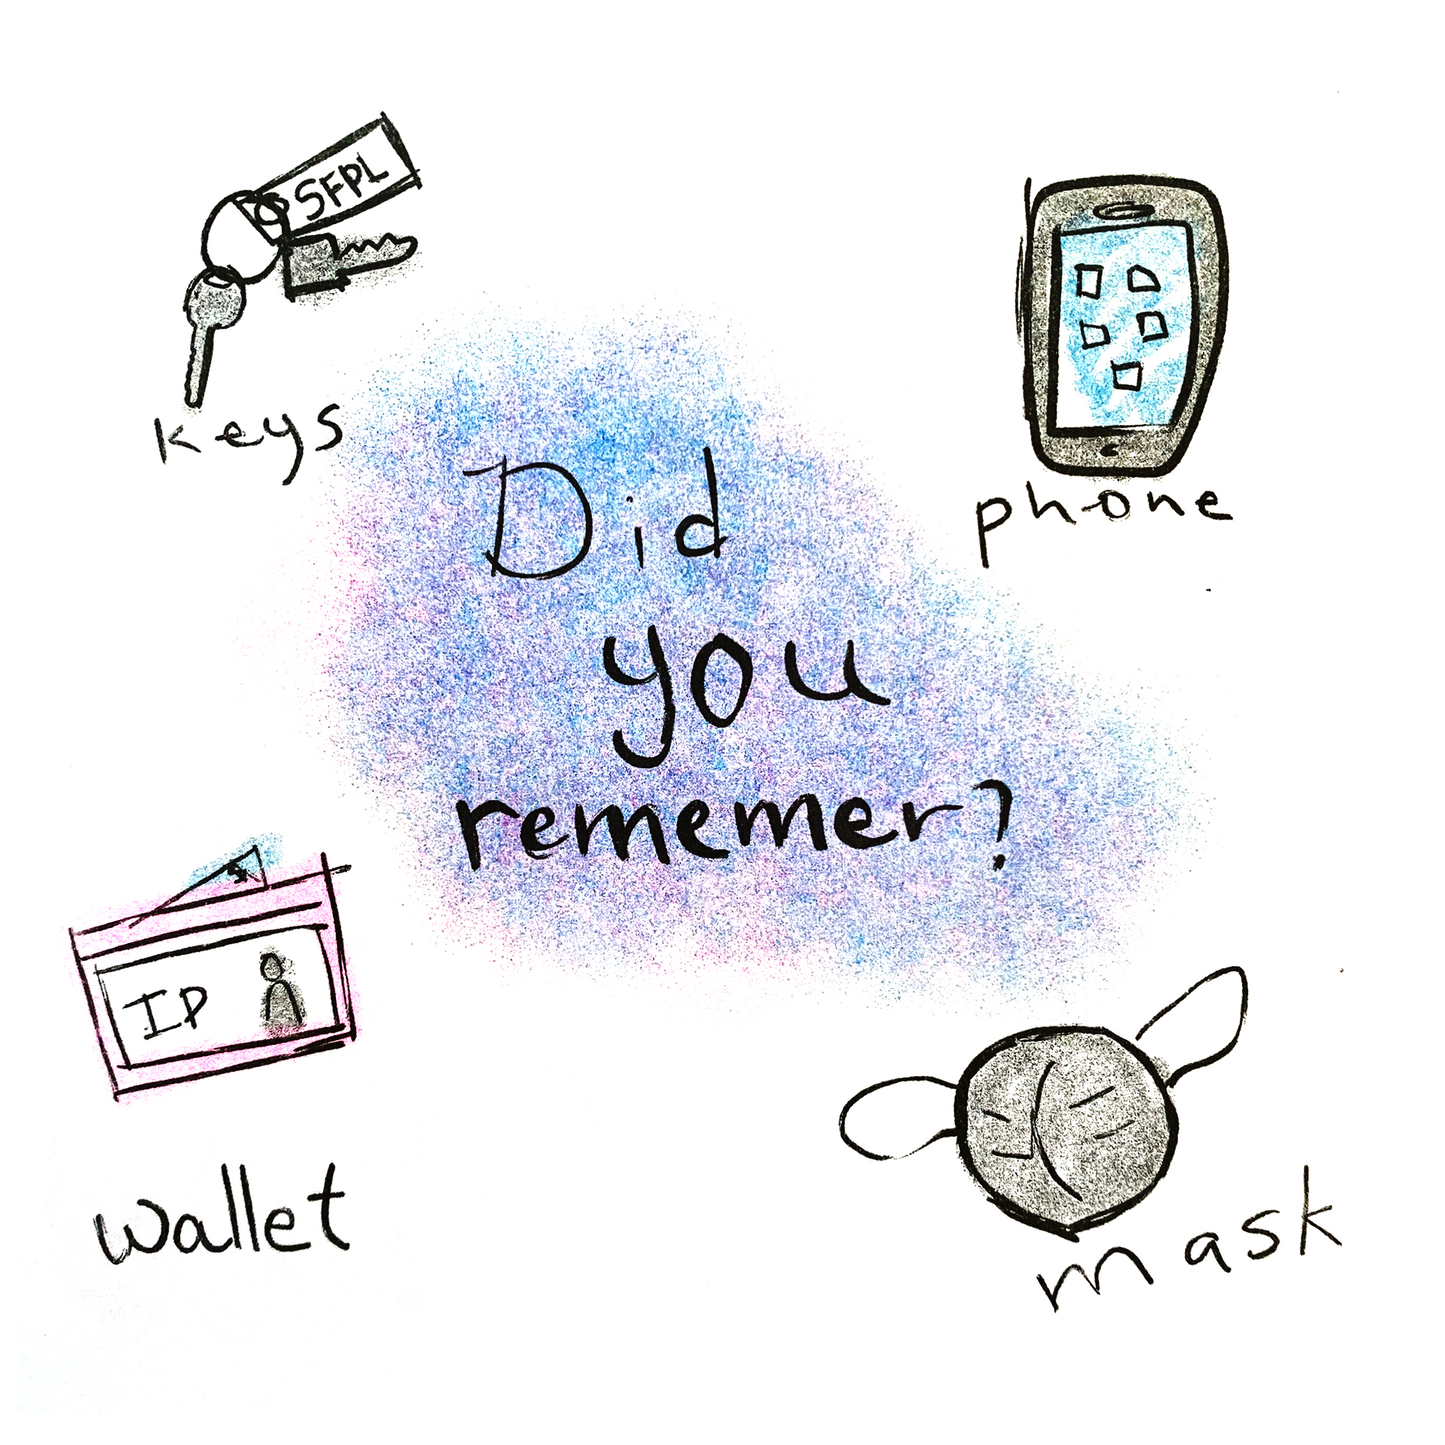 SFPL
keys
phone
Did
you
rememer?
ID
wallet
mask